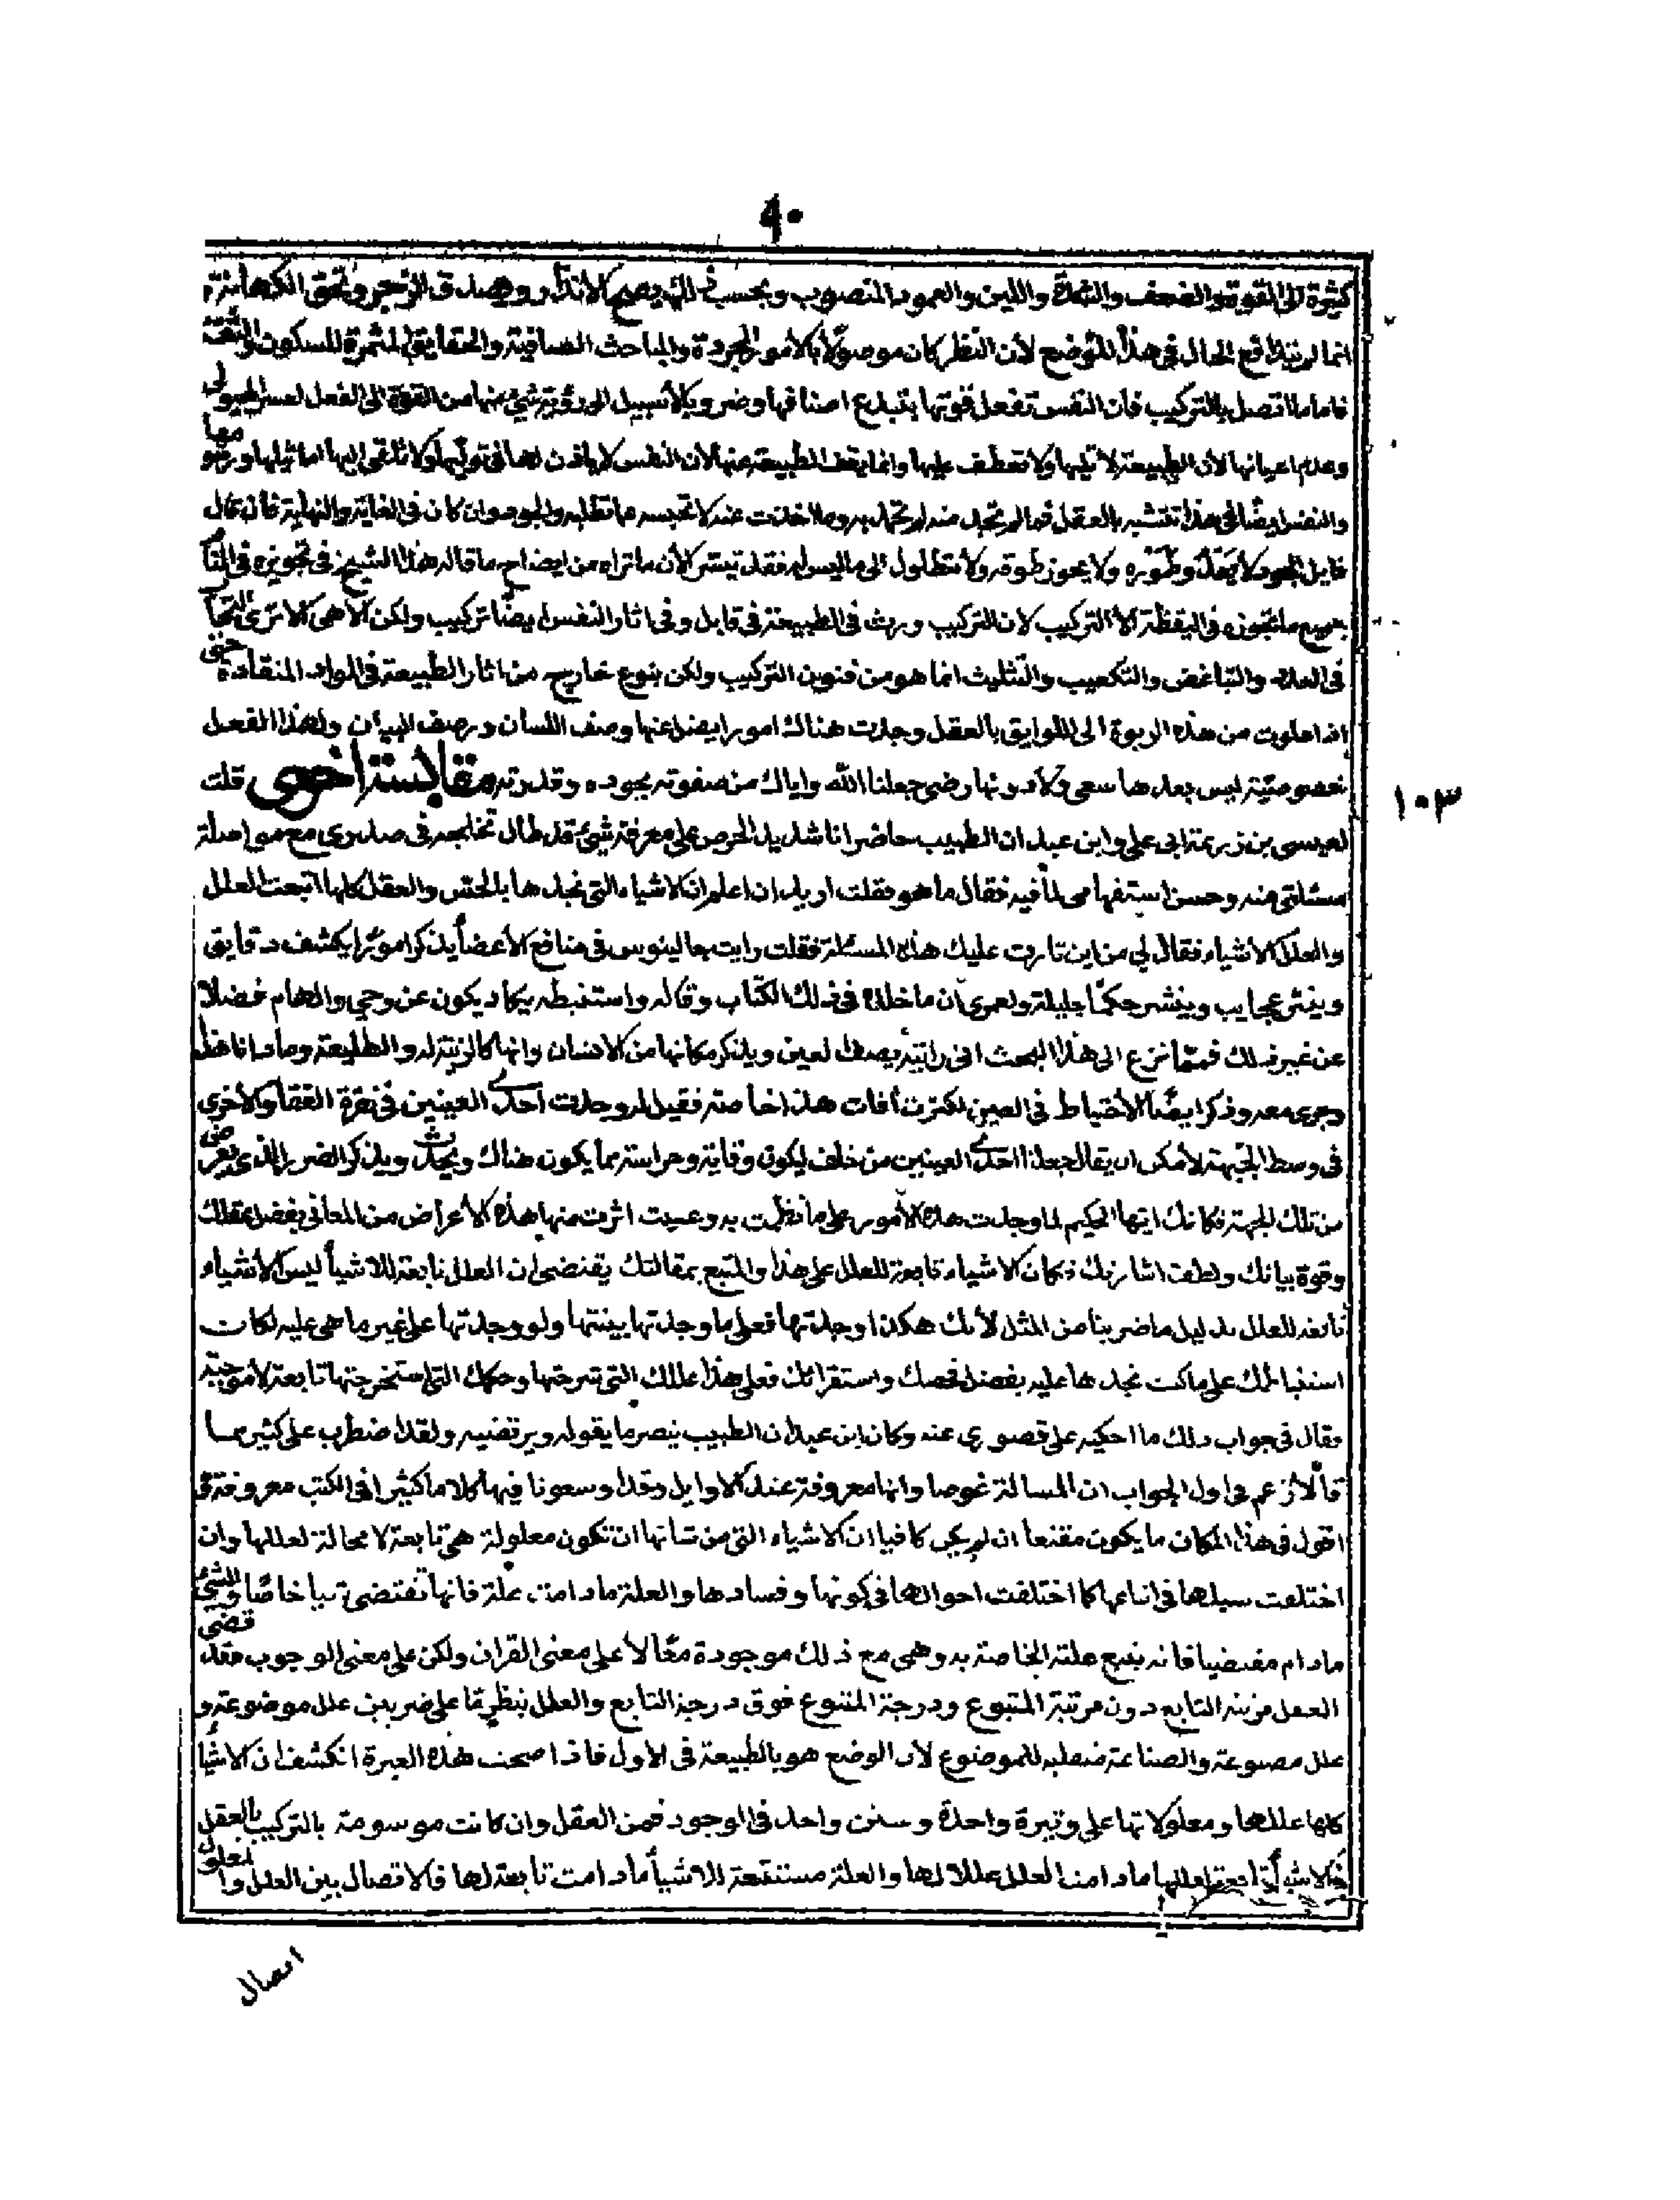 ٩٠
كثيرة الى القوة والضعف والشدة واللين والعمود المتصوب وبحسب ذلك يصح الانذار ويصدق الزجر وتحق الكهانة
انما لم نبدا في الحال في هذا الموضع لأن النظر كان موصولًا بالأمور المجردة والمباحث الصافية والحقايق المثمرة للسكون والثقة
فاما ما اتصل بالتركيب فان النفس تفعل قوتها بتبدع اصنافها وضروبها لا سبيل الى رؤية شئ منها من القوة الى الفعل لعسر الهيولى
وعدم اعيانها لان الطبيعة لا تليها ولا تعطف عليها وانما يقف الطبيعة عنها لأن النفس لا ياذن لها في توليها ولا تلقى اليها اماثيلها ورسومها
والنفس ايضًا في هذا تتشبه بالعقل فما لم تجد منه لم تجد به وما اخذت عنه لا تحبسه عما تطلبه والجود وان كان في الغاية والنهاية فان قال
قايل الجود لا يعدو طوره ولا يجوز طوقه ولا يتطاول الى ما ليس له فقد تيسر الأن ما تراه من ايضاح ما قاله هذا الشيخ في تجويزه في المنام
جميع ما يجوزه في اليقظة الا التركيب لان التركيب ورث في الطبيعة في قابل وفي اثار النفس ايضًا تركيب ولكن الاهى الا ترى التحاب
في العدد والتباغض والتكعيب والتثليث انما هو من فنون التركيب ولكن بنوع خارج من اثار الطبيعة في المواد المنقادة حتى
اذا علوت من هذه الربوة الى اللوايق بالعقل وجدت هناك امورا يضل عنها وصف اللسان ورصف البيان ولهذا الفعل
خصوصيّة ليس بعدها سعى ولا دونها رضى جعلنا الله واياك من صفوته بجوده وقدرته مقابسة اخرى قلت
١٠٣
لعيسى بن زرعة ابى علي وابن عبدان الطبيب حاضر انا شديد الحرص على معرفة شئ قد طال تخالجه فى صدرى مع مواصلة
مسئلتى عنه وحسن استفهامى لما فيه فقال ما هو فقلت اريد ان اعلم ان الاشياء التى نجدها بالحسّ والعقل كلها اتبعت العلل
والعلل الاشياء فقال لي من اين تارت عليك هذه المسئلة فقلت رايت جالينوس في منافع الأعضأ يذكر امورًا يكشف دقايق
وينثر عجايب وينشر حكمًا جليلة ولعمرى ان ما خلده في ذلك الكتاب وقاله واستنبطه بيكاد يكون عن وحي والهام فضلا
عن غير ذلك فممّا نزع الى هذا البحث انى رأيته يصف العين ويذكر مكانها من الانسان وانها كالزينة له والطليعة وما داناهذا
وجرى معه وذكر ايضًا الأحتياط في العين لكثرت أفات هذا خاصة فقيل لم وجدت احدى العينين في نقرة القفا والأخرى
في وسط الجبهة لأمكن ان يقال جعلنا احدى العينين من خلف ليكون وقاية وحراسة مما يكون هناك ويحدث ويذكر الضر الذى يعرض
من تلك الجهة فكانك ايها الحكيم لما وجدت هذه الأمور على ما نظمت به وعييت اثرت منها هذه الأعراض من المعانى بفضل عقلك
وقوة بيانك ولطف اشارتك فكان الاشياء تابعة للعلل على هذا والمتبع بمقالتك يقتضى ان العلل تابعة للاشيأ ليس الأشياء
تابعة للعلل بدليل ما ضربنا من المثل لأنك هكذا وجدتها فعلى ما وجدتها بينتها ولو وجدتها على غير ما هى عليه لكانت
استنباطك على ما كنت نجدها عليه بفضل فحصك واستقرائك فعلى هذا عللك التى شرحتها وحكمك التى استخرجتها تابعة لامور
فقال في جواب ذلك ما احكيه على قصورى عنه وكان ابن عبدان الطبيب ينصر ما يقوله ويرتضيه ولقد اضطرب على كثير مما
قالا زعم فى اول الجواب ان المسالة غوصا وانها معروفة عند الاوايل وقد اوسعونا فيها كلاما كثيرا في الكتب معروفة وفى
اقول في هذا المكان ما يكون مقنعا ان لم يكن كافيا ان الاشياء التى من شانها ان تكون معلولة هى تابعة لا محالة لعللها وان
اختلفت سبلها فى اتباعها كما اختلفت احوالها فى كونها وفسادها والعلة ما دامت علة فانها تقتضى تبا خاصًا والشئ
ما دام مقتضيا فانه يتبع علته الخاصة به وهى مع ذلك موجودة معًا لا على معنى القران ولكن على معنى الوجوب فقد قضى
العقل مرتبة التابع دون مرتبة المتبوع ودرجة المتبوع فوق درجة التابع والعلل بنظر ما على ضربين علل موضوعة و
علل مصنوعة والصناعة منقلبه للموضوع لأن الوضع هو بالطبيعة في الأول فاذا صحت هذه العبرة انكشف ان الاشيأ
كلها عللها ومعلولاتها على وتيرة واحدة وسنن واحد في الوجود فمن العقل وان كانت موسومة بالتركيب بالعقل
فالاشيأ تابعة لعللها ما دامت العلل عللا لها والعلة مستتبعة للاشيأ ما دامت تابعة لها فالاتصال بين العلل والمعلول
اتصال